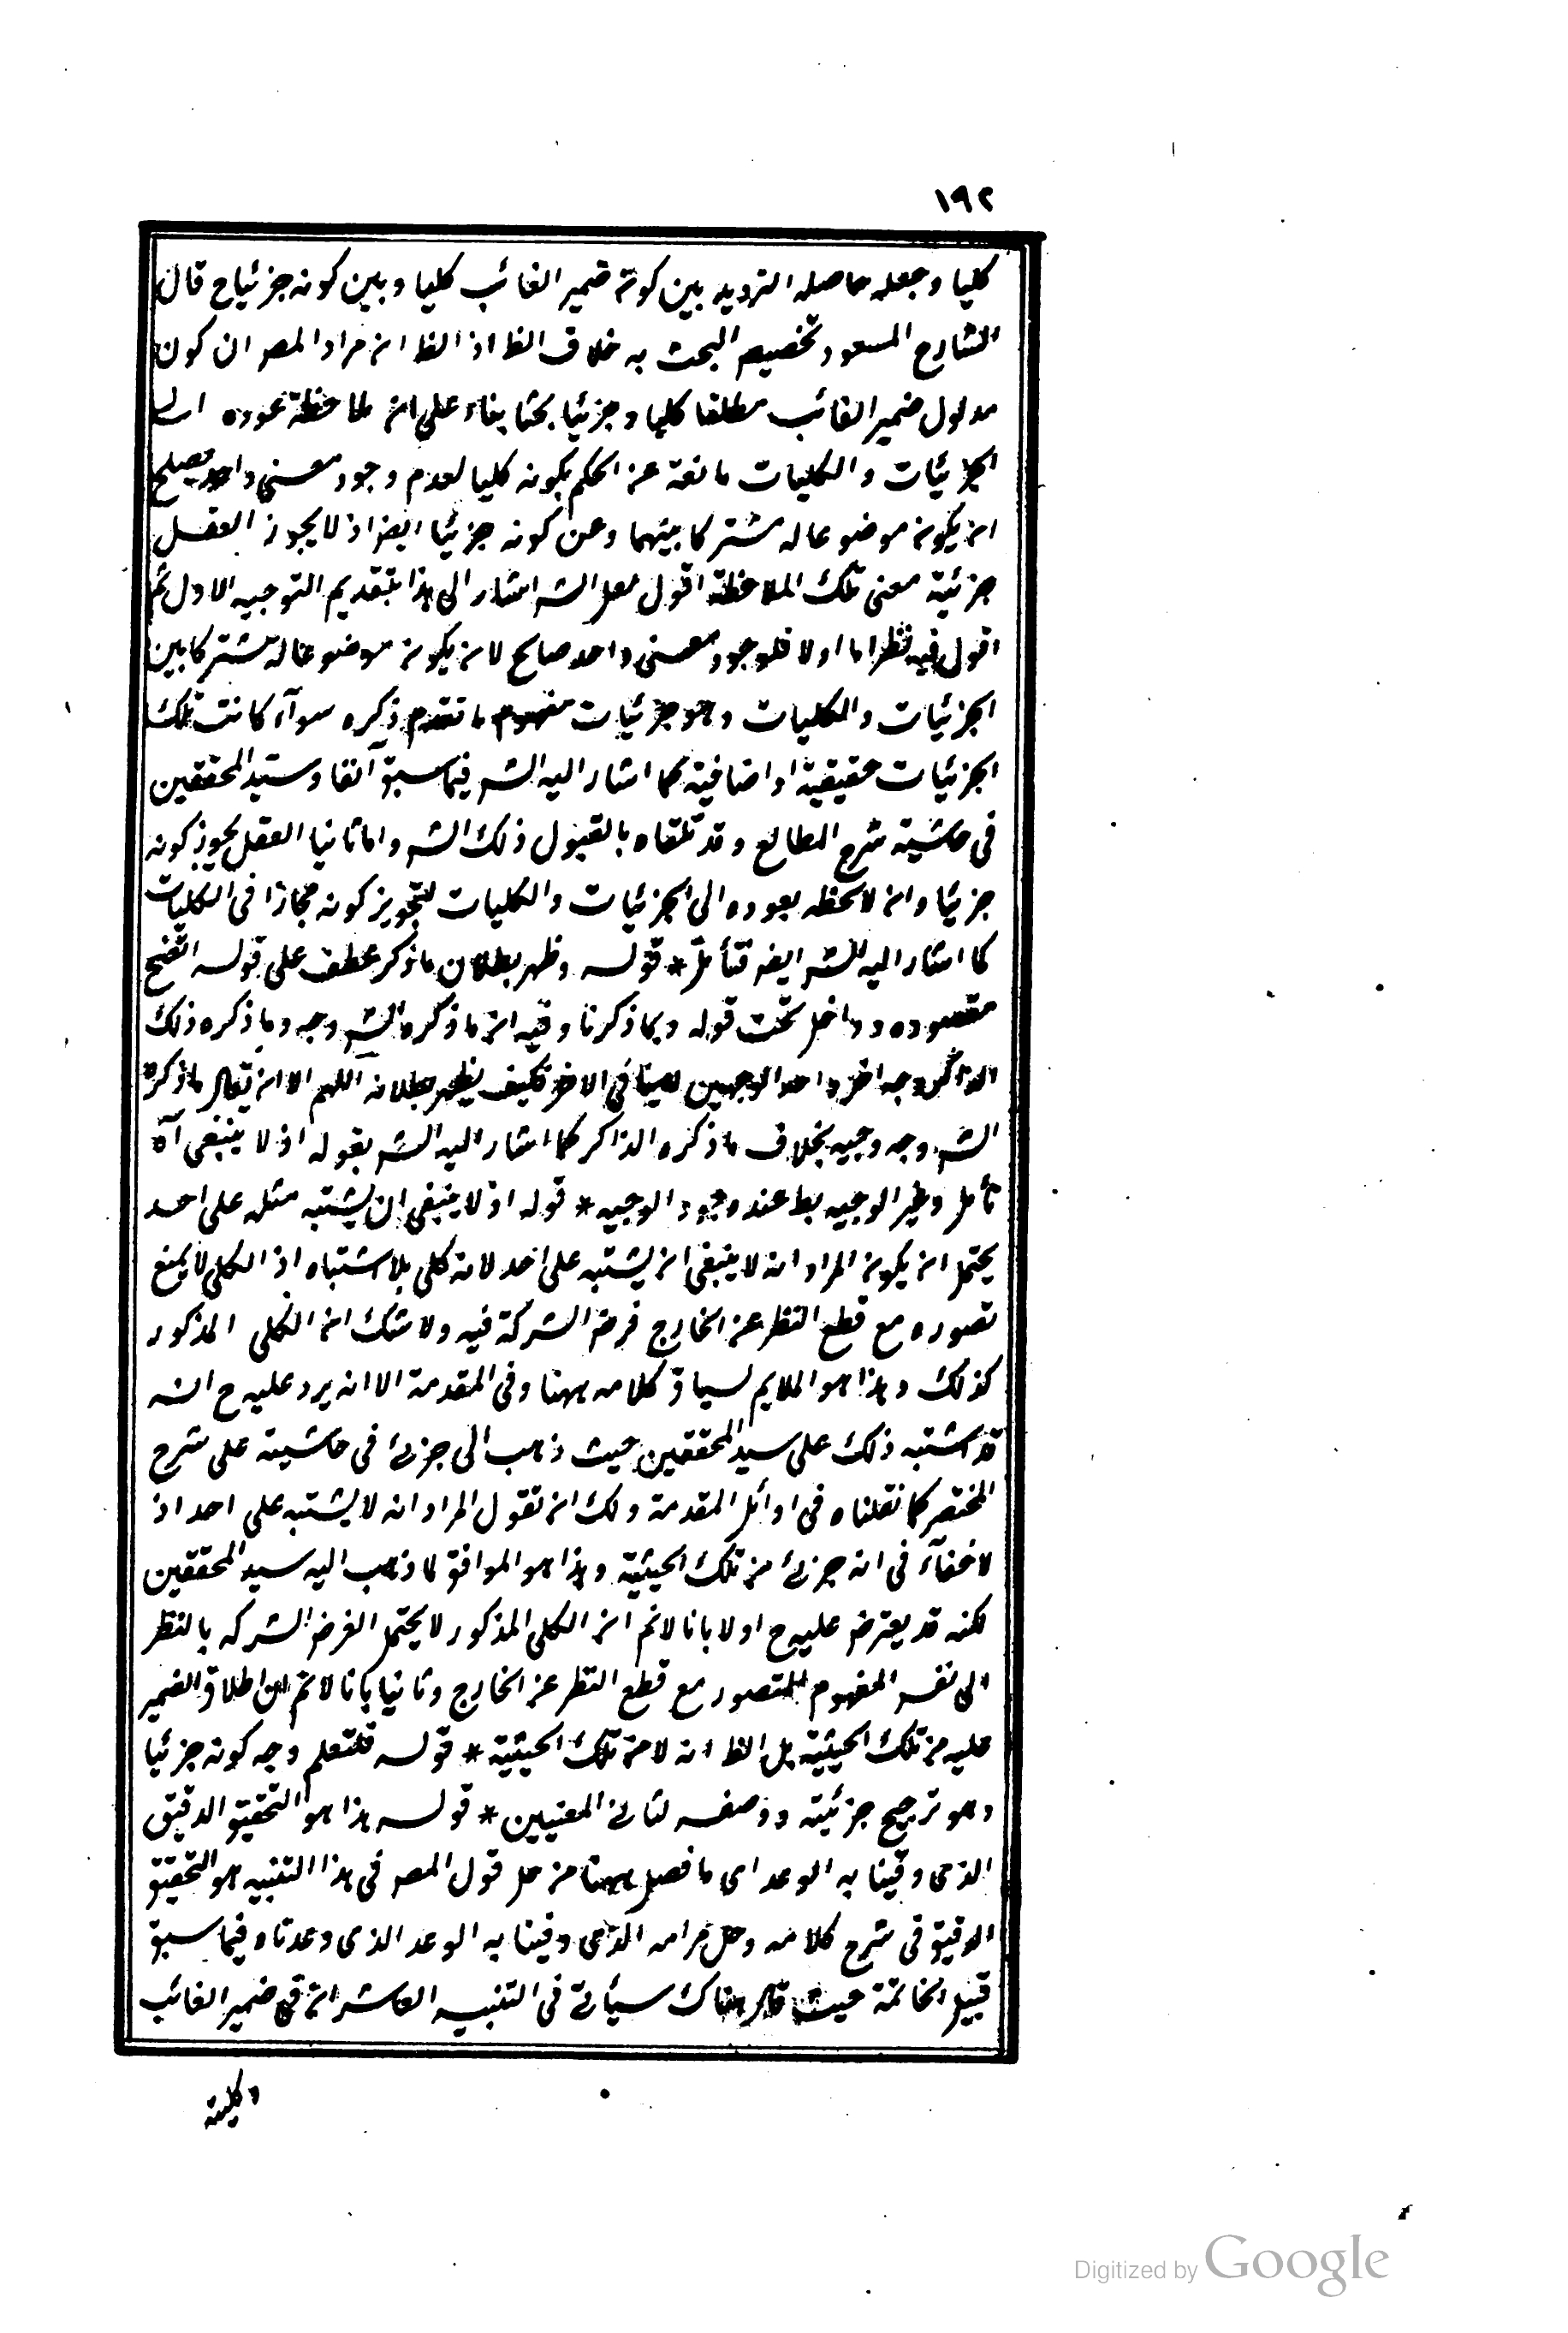 ١٩٢
كليا وجعله حاصله الترديد بين كونه ضمير الغائب كليا وبين كونه جزئياح قال
الشارح المسعود تخصيص البحث به خلاف الظ اذ الظ ان مراد المص ان كون
مدلول ضمير الغائب مطلقا كليا وجزئيا بحثا بناء على ان ملاحظة عوده الى
الجزئيات والكليات مانعة عن الحكم بكونه كليا لعدم وجود معنى واحد يصلح
ان يكون موضوعا له مشتركا بينهما وعن كونه جزئيا ايضا اذ لا يجوز العقل
جزئية معنى تلك الملاحظة اقول لعل الشه اشار الى هذا بتقديم التوجيه الاول ثم
اقول فيه نظر اما اولا فلوجود معنى واحد صالح لان يكون موضوعا له مشتركا بين
الجزئيات والكليات وهو جزئيات مفهوم ما تقدم ذكره سوآء كانت تلك
الجزئيات حقيقية او اضافية كما اشار اليه الشه فيما سبق آنفا وسيد المحققين
فى حاشية شرح المطالع وقد تلقاه بالقبول ذلك الشه واما ثانيا العقل يجوز كونه
جزئيا وان لاحظه بعوده الى الجزئيات والكليات لتجويز كونه مجازا فى الكليات
كما اشار اليه الشه ايضا فتأمل * قوله وظهر بطلان ما ذكر عطف على قوله اتضح
مقصوده وداخل تحت قوله وبما ذكرنا وفيه ان ما ذكره الشه وجه وما ذكره ذلك
الذاكر وجه اخر واحد الوجهين لا ينافى الاخر فكيف يظهر بطلانه اللهم الا ان يقال ما ذكره
الشه وجه وجيه بخلاف ما ذكره الذاكر كما اشار اليه الشه بقوله اذ لا ينبغى آه
تأمل وغير الوجيه بط عند وجود الوجيه * قوله اذ لا ينبغى ان يشتبه مثله على احد
يحتمل ان يكون المراد انه لا ينبغى ان يشتبه على احد لانه كلى بلا اشتباه اذ الكلى لا يمنع
تصوره مع قطع النظر عن الخارج فرض الشركة فيه ولا شك ان الكلى المذكور
كذلك وهذا هو الملايم لسياق كلامه ههنا وفى المقدمة الا انه يرد عليه ح انه
قد اشتبه ذلك على سيد المحققين حيث ذهب الى جزئ فى حاشيته على شرح
المختصر كما نقلناه فى اوائل المقدمة ولك ان تقول المراد انه لا يشتبه على احد اذ
لا خفآء فى انه جزئ من تلك الحيثية وهذا هو الموافق لما ذهب اليه سيد المحققين
لكنه قد يعترض عليه ح اولا بانا لانم ان الكلى المذكور لا يحتمل الفرض الشركه بالنظر
الى نفس المفهوم المتصور مع قطع النظر عن الخارج وثانيا بانا لانم ان اطلاق الضمير
عليه من تلك الحيثية بل الظ انه لا من تلك الحيثية * قوله فلتعلم وجه كونه جزئيا
وهو ترجيح جزئيته ووضعه لثانى المعنيين * قوله هذا هو التحقيق الدقيق
الذى وفينا به الوعد اى ما فصل ههنا من حل قول المص فى هذا التنبيه هو التحقيق
الدقيق فى شرح كلامه وحل مرامه الذى وفينا به الوعد الذى وعدناه فيما سبق
قبيل الخاتمة حيث قال هناك سيأتى فى التنبيه العاشر ان فى ضمير الغائب
وكليته
Digitized by Google